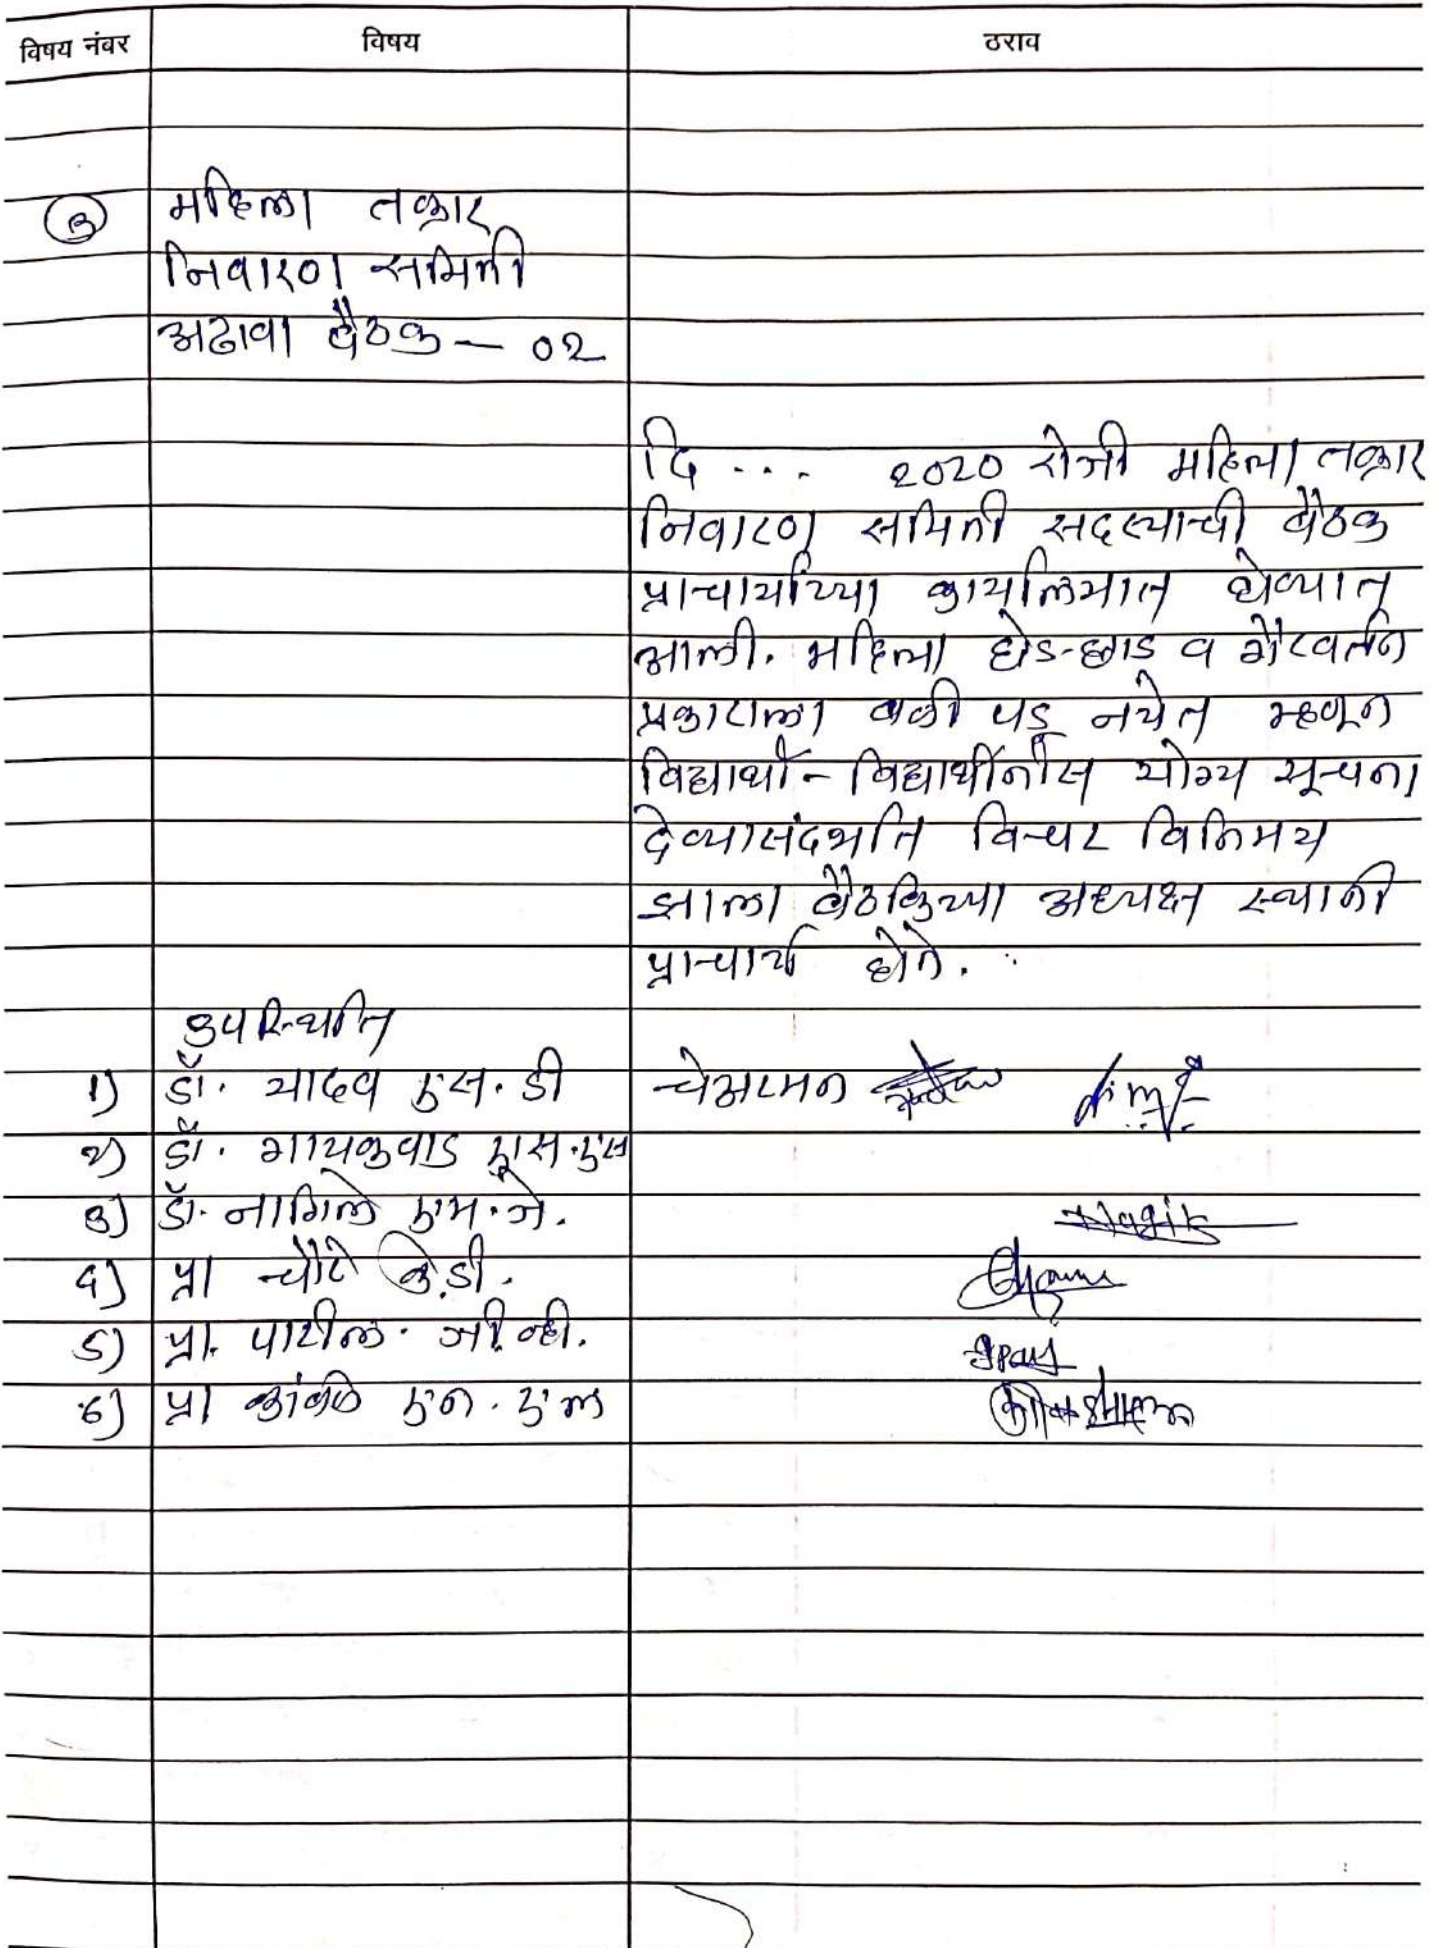 विषय नंबर विषय ठराव
३ महिला तक्रार
निवारण समिती
अढावा बैठक — ०२
दि ... २०२० रोजी महिला तक्रार
निवारण समिती सदस्याची बैठक
प्राचार्यांच्या कार्यालयात घेण्यात
आली. महिला छेड-छाड व गैरवर्तन
प्रकाराला बळी पडू नयेत म्हणून
विद्यार्थी - विद्यार्थीनीस योग्य सूचना
देण्यासंदर्भात विचर विनिमय
झाला बैठकिच्या अध्यक्ष स्थानी
प्राचार्य होते.
उपस्थिति
१) डॉ. यादव एस. डी चेअरमन
२) डॉ. गायकवाड एस. एस
३) डॉ. नागिले एम. जे. Nagile
४) प्रा चौरे के.डी.
५) प्रा. पाटील. जी.व्ही.
६) प्रा कांबळे एन. एल